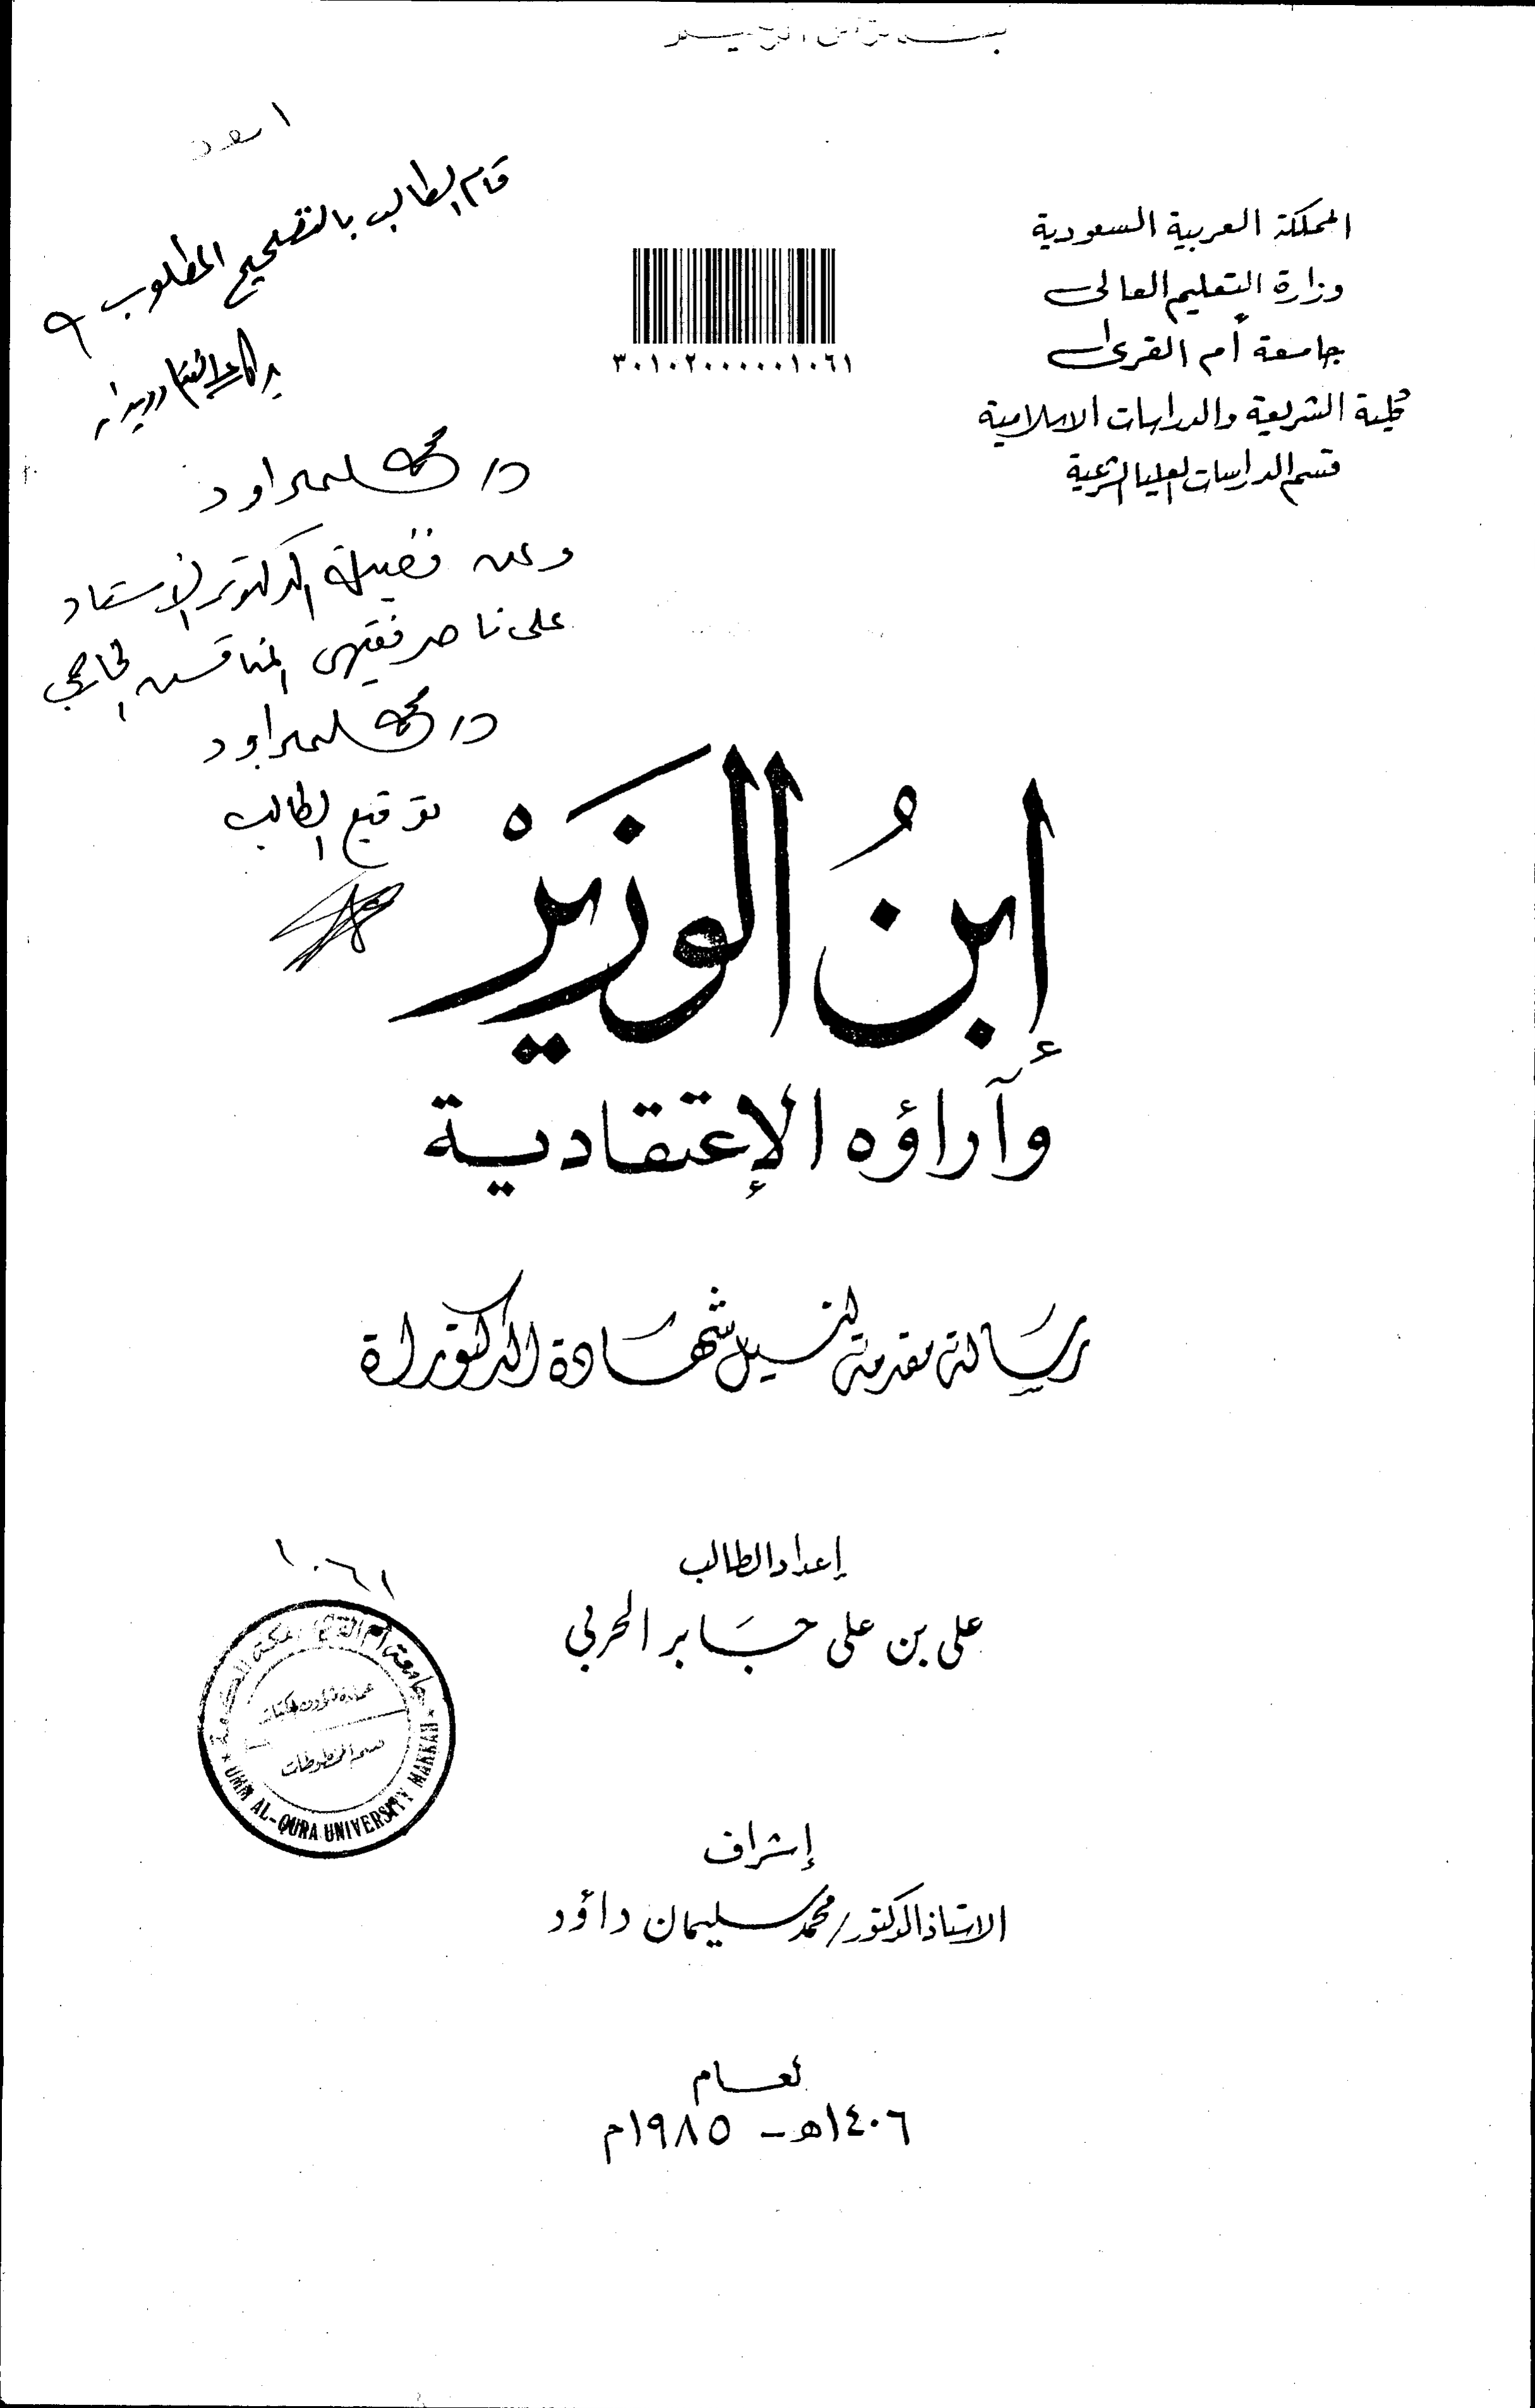 المملكة العربية السعودية
وزارة التعليم العالى
جامعة أم القرى
كلية الشريعة والدراسات الاسلامية
قسم الدراسات العليا الشرعية
٣٠١٠٢٠٠٠٠٠٠١٠٦١
قام الطالب بالتصحيح المطلوب
د/ محمد سليمان داود
وعن فضيلة الدكتور الأستاذ
على ناصر فقيهى المناقش الخارجي
د/ محمد سليمان داود
توقيع الطالب
إبنُ الوَزيْر
وآراؤه الإعتقادية
رسَالة مقدمة لنيل شهَادة الدكتوراة
إعداد الطالب
على بن على جَابر الحربي
١٠٦١
جامعة أم القرى بمكة المكرمة
عمادة شؤون المكتبات
قسم المخطوطات
UMM AL-QURA UNIVERSITY MAKKAH
إشراف
الاستاذ الدكتور/ محمد سليمان داؤد
لعام
١٤٠٦هـ - ١٩٨٥م